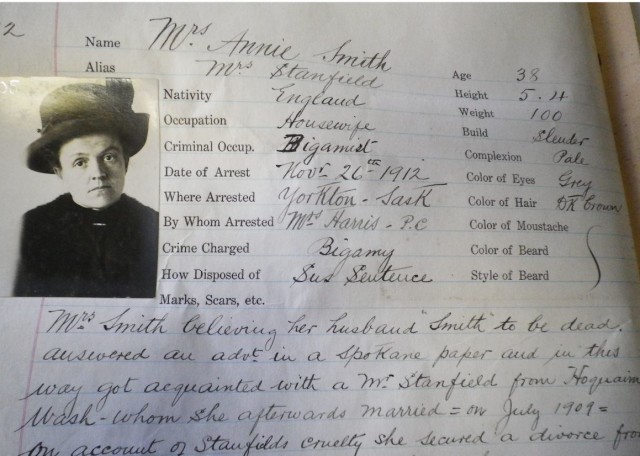 2
Name Mrs Annie Smith
Alias Mrs Stanfield
Age 38
Nativity England
Height 5.4
Occupation Housewife
Weight 100
Criminal Occup. Bigamist
Build Slender
Date of Arrest Novr 26th 1912
Complexion Pale
Where Arrested Yorkton - Sask
Color of Eyes Grey
By Whom Arrested Mrs Harris - P.C
Color of Hair DK Brown
Crime Charged Bigamy
Color of Moustache
How Disposed of Sus Sentence
Color of Beard
Marks, Scars, etc.
Style of Beard
Mrs Smith believing her husband "Smith" to be dead.
answered an advt in a Spokane paper and in this
way got acquainted with a Mr Stanfield from Hoquaim
Wash - whom she afterwards married = on July 1909 =
on account of Stanfields cruelty she secured a divorce from